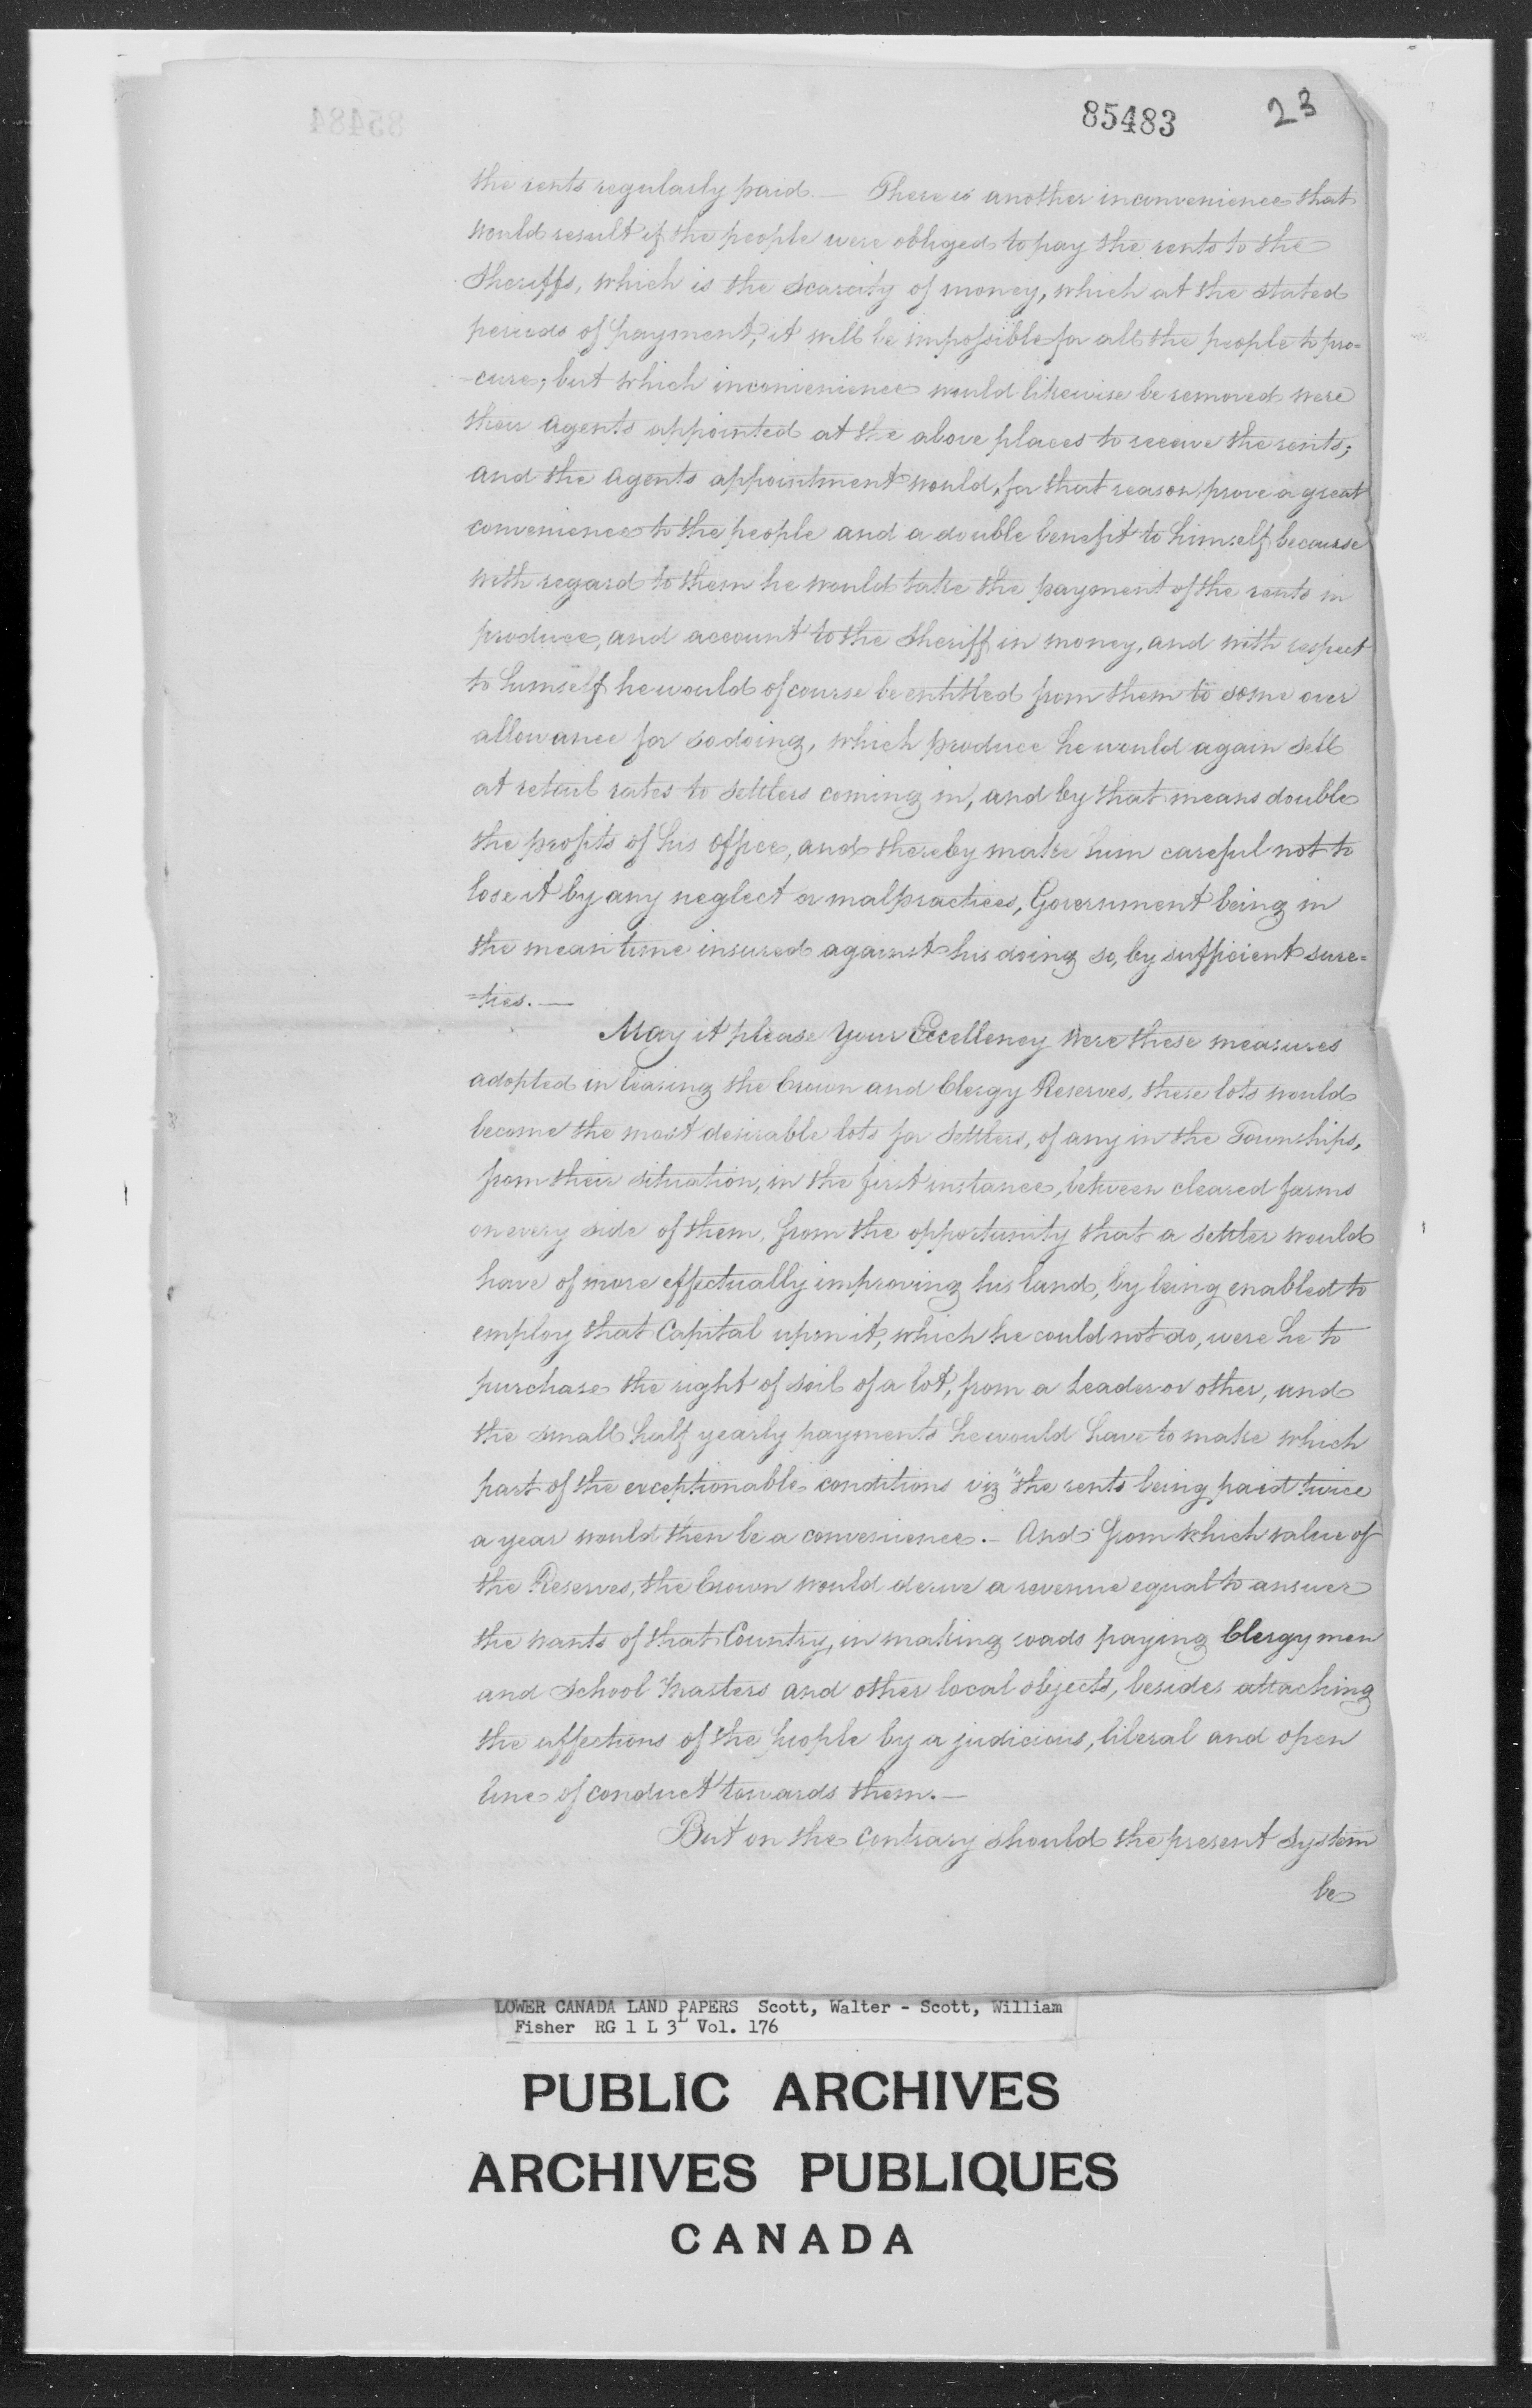 85483 23
the rents regularly paid.— There is another inconvenience that
would result if the people were obliged to pay the rents to the
Sheriffs, which is the scarcity of money, which at the stated
periods of payment, it will be impossible for all the people to pro=
-cure, but which inconvenience would likewise be removed were
their Agents appointed at the above places to receive the rents;
and the Agents appointment would, for that reason, prove a great
convenience to the people and a double benefit to himself because
with regard to them he would take the payment of the rents in
produce, and account to the Sheriff in money, and with respect
to himself he would of course be entitled from them to some over
allowance for so doing, which produce he would again sell
at retail rates to settlers coming in, and by that means double
the profits of his Office, and thereby make him careful not to
lose it by any neglect or malpractices, Government being in
the mean time insured against his doing so, by sufficient sure=
=ties.—
May it please Your Excellency were these measures
adopted in leasing the Crown and Clergy Reserves, these lots would
become the most desirable lots for Settlers, of any in the Townships,
from their situation, in the first instance, between cleared farms
on every side of them, from the opportunity that a settler would
have of more effectually improving his land, by being enabled to
employ that Capital upon it, which he could not do, were he to
purchase the right of soil of a lot, from a Leader or other, and
the small half yearly payments he would have to make which
part of the exceptionable conditions viz "the rents being paid twice
a year would then be a convenience.— And from which value of
the Reserves, the Crown would derive a revenue equal to answer
the wants of that Country, in making roads paying Clergymen
and School Masters and other local objects, besides attaching
the affections of the people by a judicious, liberal and open
line of conduct towards them.—
But on the contrary should the present System
be
LOWER CANADA LAND PAPERS Scott, Walter - Scott, William
Fisher RG 1 L 3L Vol. 176
PUBLIC ARCHIVES
ARCHIVES PUBLIQUES
CANADA